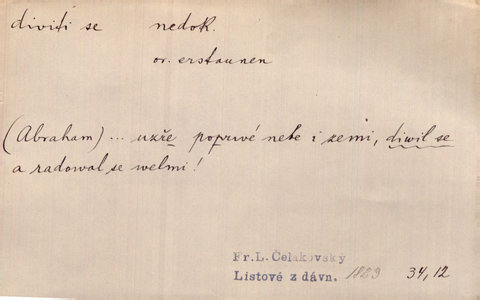 diviti se nedok.
or. erstaunen
(Abraham) ... uzře poprvé nebe i zemi, diwil se
a radowal se welmi!
Fr. L. Čelakovský
Listové z dávn. 1823 34,12